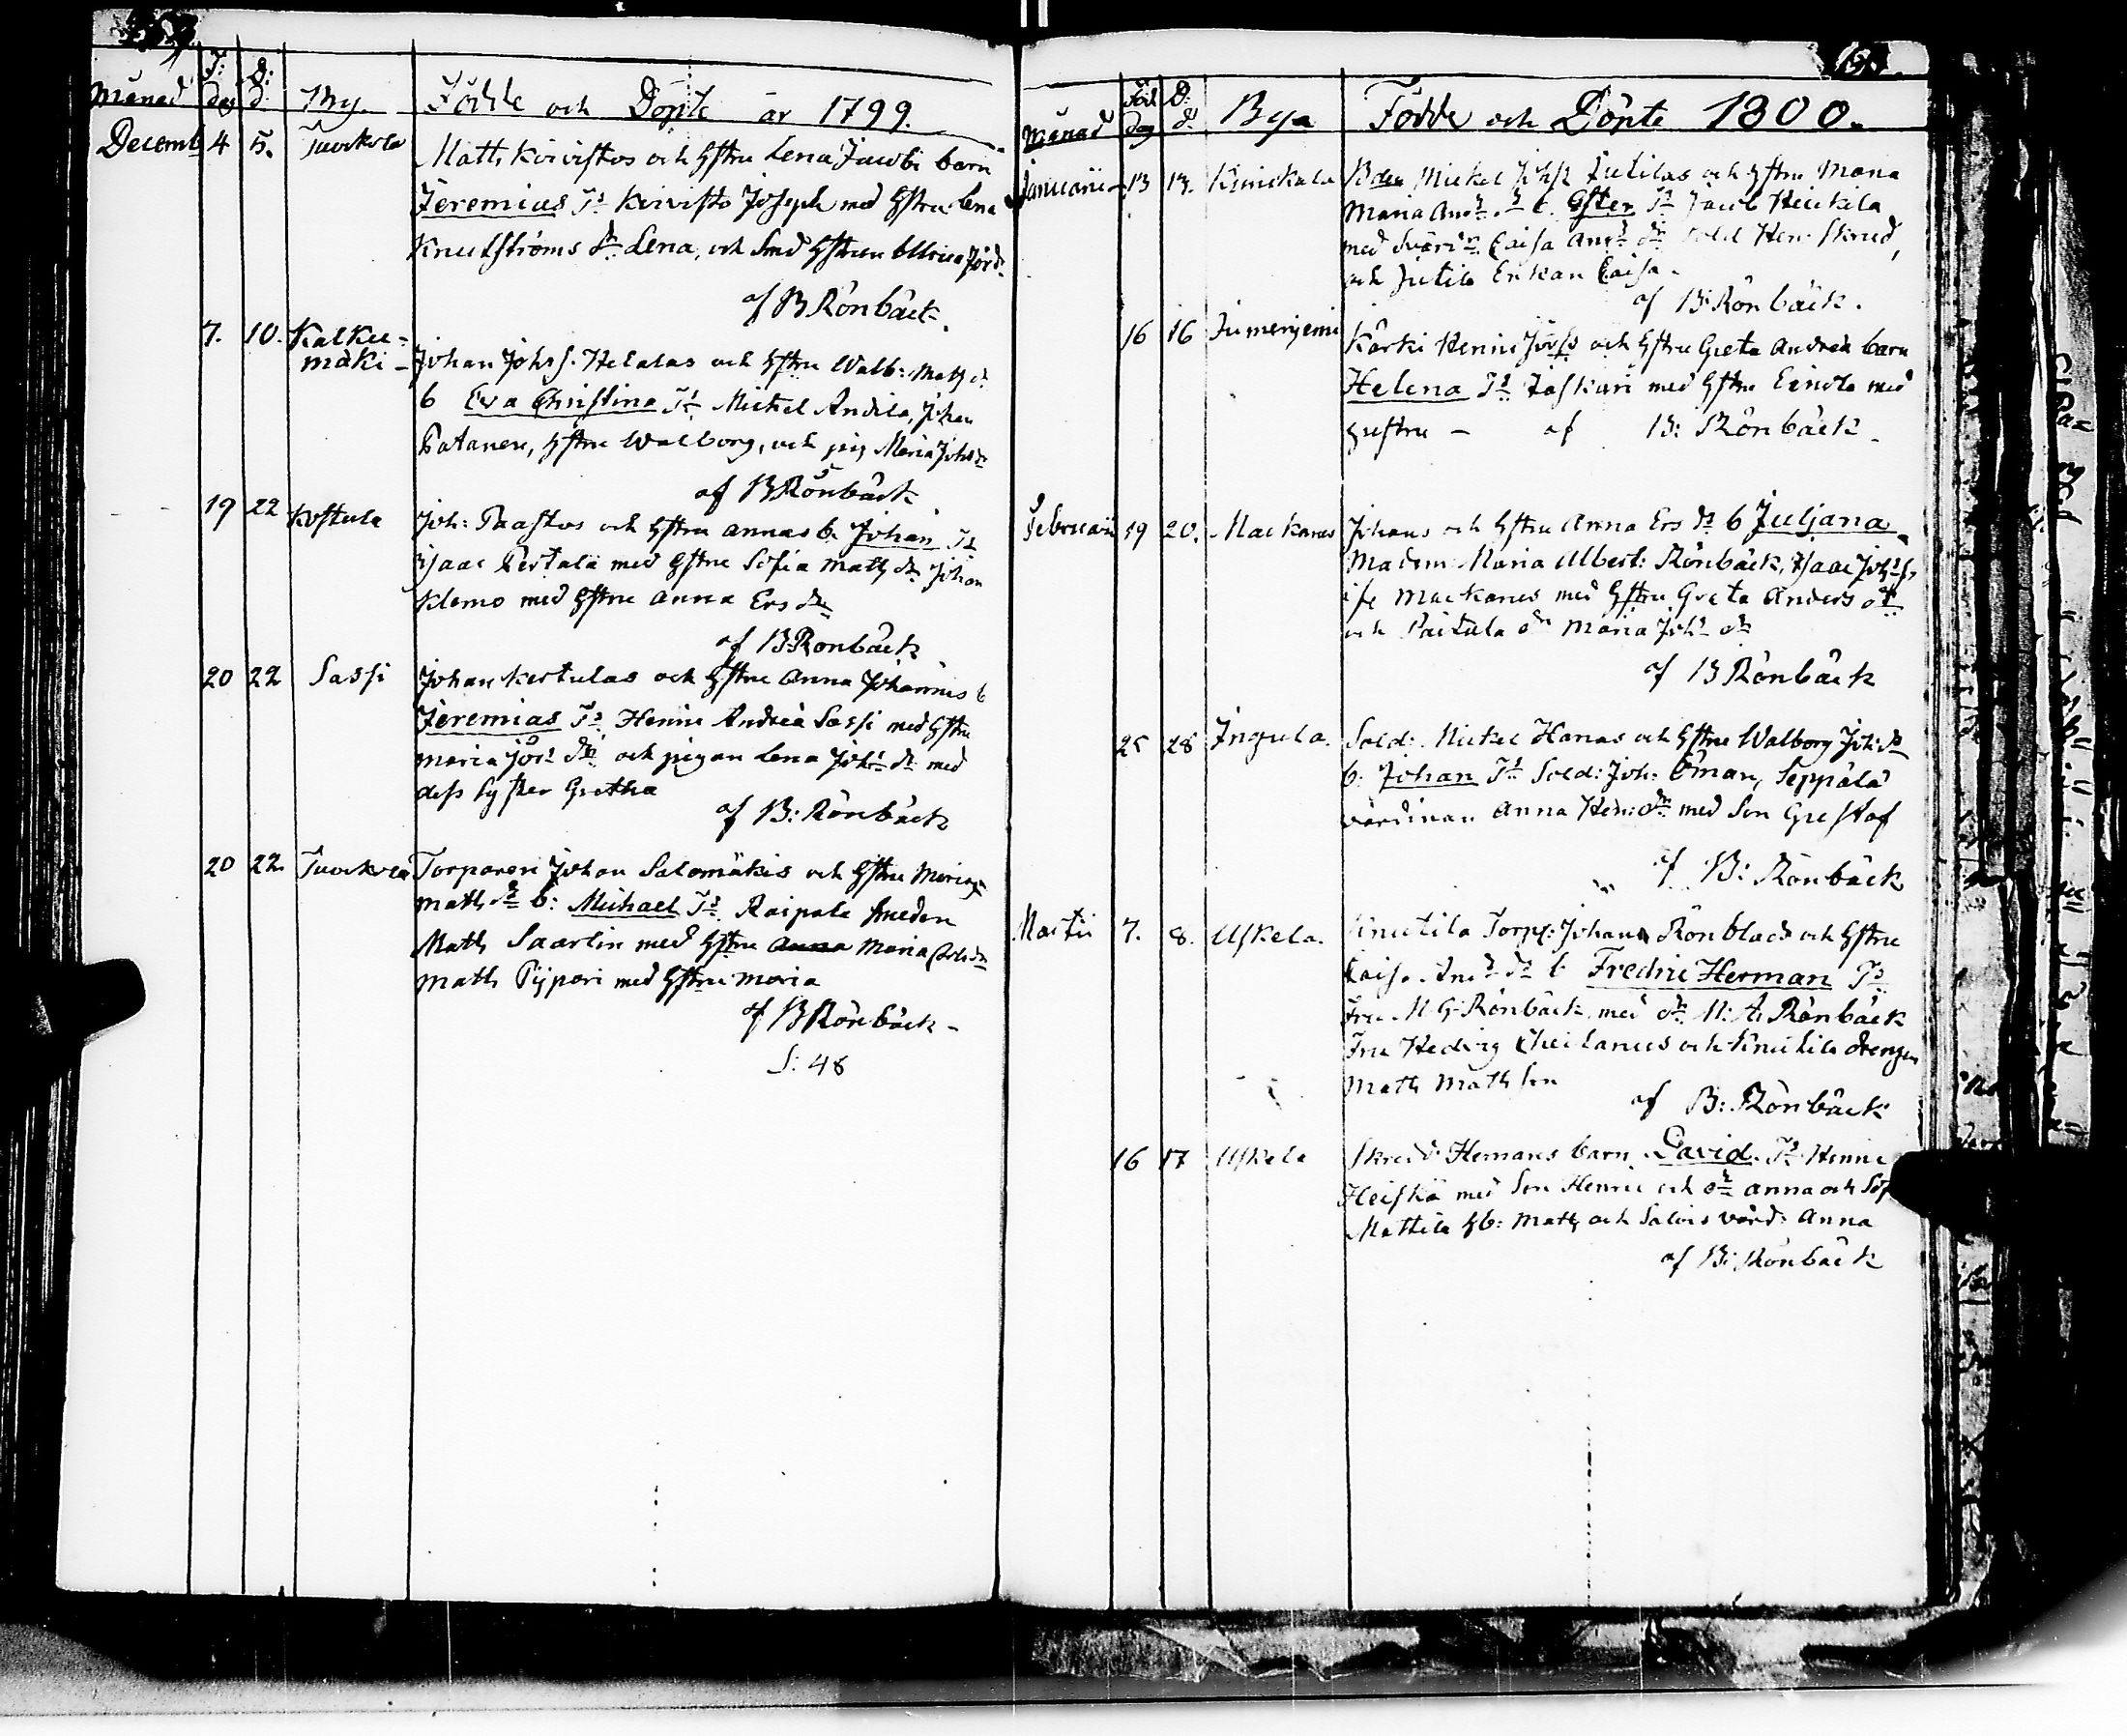 Månad F: dag D: d. By. Födde och Döpte år 1799.
Decemb 4 5. Tuorkola Math Koivistos och Hstru Lena Jacobi barn
Jeremias Ts Koivisto Joseph med Hstru Lena
Knutströms dr Lena, och Smed Hstrun Ulrica Jör dr
af B Rönbäck.
7. 10. Kalku-
mäki - Johan Johs s. Helalas och Hstru Walb: Math dr
b Eva Christina Ts Mickel Andila, Johan
Patanen, Hstru Walborg, och pig Maria Johs dr
af B Rönbäck
19 22 Kostula Joh: Paastos och Hstru annas b. Johan Ts
Isaac Pertala med Hstru Sofia Math dr Johan
Klemo med Hstru Anna Ers dr
af B Rönbäck
20 22 Sassi Johan Kertulas och Hstru Anna Johannis b
Jeremias Ts Henric Andreæ Sassi med Hstru
Maria Jör: dr och pigan Lena Joh: dr med
dess Syster Gretha
af B: Rönbäck
20 22. Tuorkola Torparen Johan Salomäkis och Hstru Marias
Math dr b: Michael Ts Raipala Smeden
Math Saarlin med Hstru Anna Maria Joh dr
Math Pijpari med Hstru Maria
af B Rönbäck -
S: 48
Månad Föd dag D: d. Bya Födde och Döpte 1800.
Januarii 13 13. Kuuckala Bden Mickel Johs Jutilas och Hstru
Maria And: dr b. Ester Ts Jacob Heickilä
med Svärd: Caisa And: dr Sold Hen: Skred,
och Jutila Enkan Caisa.
af B: Rönbäck.
16 16 Jumenjemi Kärki Henric Jörss och Hstru Greta Andreæ barn
Helena Ts Jaskari med Hstru Eenola med
Hustru - af B: Rönbäck
Februarii 19 20. Mackanes Johans och Hstru Anna Ers dr b Juljana
Madem: Maria Albert: Rönbäck, Isaac Johs s.
Mackanes med Hstru Greta Anders dr
och Paitula dr Maria Joh: dr
af B Rönbäck
25 28 Ingula. Sold: Mickel Hanas och Hstru Walborg Joh: dr
b. Johan Ts Sold: Joh: Öman, Seppälä
värdinan Anna Hen: dr med Son Gustaf
af B: Rönbäck
Martii 7. 8. Uskela. Knutila Torp: Johan Rönblads och Hstru
Caisa And: dr b Fredric Herman Ts
Fru M G Rönbäck med dr M: A: Rönbäck
Fru Hedvig och Knutila drengen
Math Mathsson
af B: Rönbäck
16 17 Uskela Skredd: Hemans barn David. Ts Henric
Heiskä med Son Henric och dr Anna och
Mattila Hb: Math och Salvis värd: Anna
af B: Rönbäck